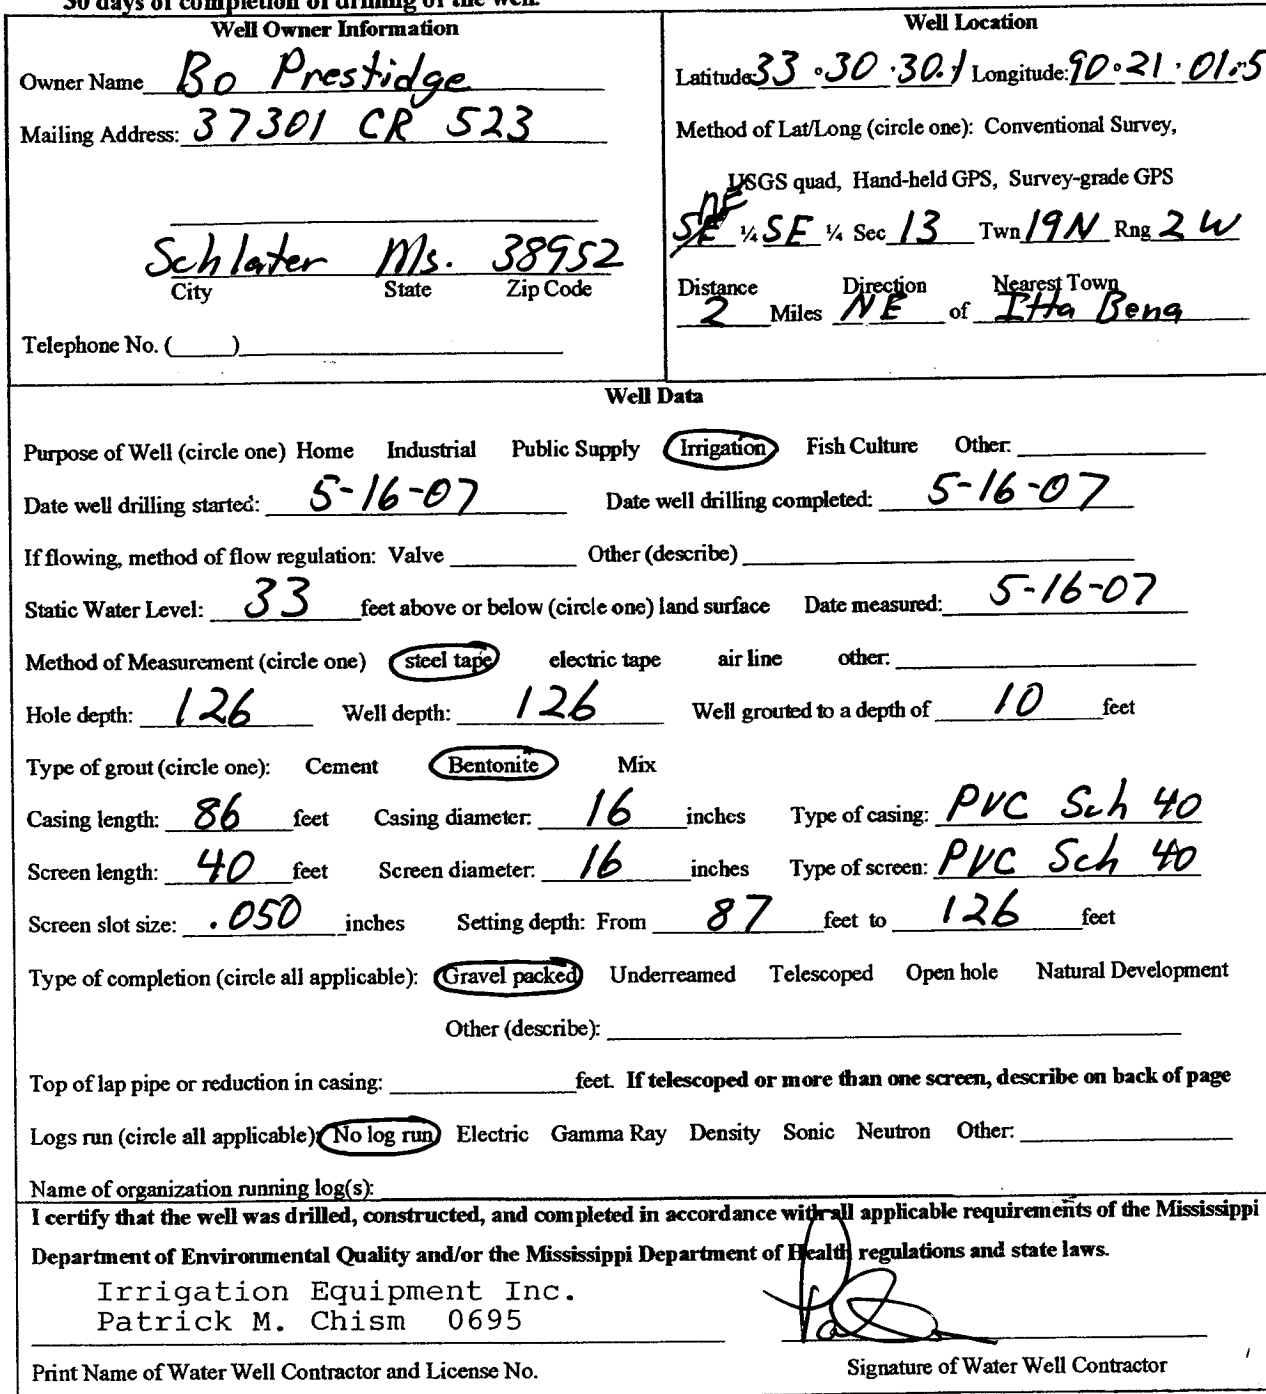 30 days of completion of drilling of the well.
Well Owner Information
Owner Name Bo Prestidge
Mailing Address: 37301 CR 523
Schlater Ms. 38952
City State Zip Code
Telephone No. (____)
Well Location
Latitude: 33 ° 30 ' 30.1 Longitude: 90 ° 21 ' 01.5
Method of Lat/Long (circle one): Conventional Survey,
USGS quad, Hand-held GPS, Survey-grade GPS
NE
SE ¼ SE ¼ Sec 13 Twn 19N Rng 2 W
Distance Direction Nearest Town
2 Miles NE of Itta Bena
Well Data
Purpose of Well (circle one) Home Industrial Public Supply Irrigation Fish Culture Other:
Date well drilling started: 5-16-07 Date well drilling completed: 5-16-07
If flowing, method of flow regulation: Valve Other (describe)
Static Water Level: 33 feet above or below (circle one) land surface Date measured: 5-16-07
Method of Measurement (circle one) steel tape electric tape air line other:
Hole depth: 126 Well depth: 126 Well grouted to a depth of 10 feet
Type of grout (circle one): Cement Bentonite Mix
Casing length: 86 feet Casing diameter: 16 inches Type of casing: PVC Sch 40
Screen length: 40 feet Screen diameter: 16 inches Type of screen: PVC Sch 40
Screen slot size: .050 inches Setting depth: From 87 feet to 126 feet
Type of completion (circle all applicable): Gravel packed Underreamed Telescoped Open hole Natural Development
Other (describe):
Top of lap pipe or reduction in casing: feet. If telescoped or more than one screen, describe on back of page
Logs run (circle all applicable): No log run Electric Gamma Ray Density Sonic Neutron Other:
Name of organization running log(s):
I certify that the well was drilled, constructed, and completed in accordance with all applicable requirements of the Mississippi
Department of Environmental Quality and/or the Mississippi Department of Health regulations and state laws.
Irrigation Equipment Inc.
Patrick M. Chism 0695
Print Name of Water Well Contractor and License No.
Signature of Water Well Contractor